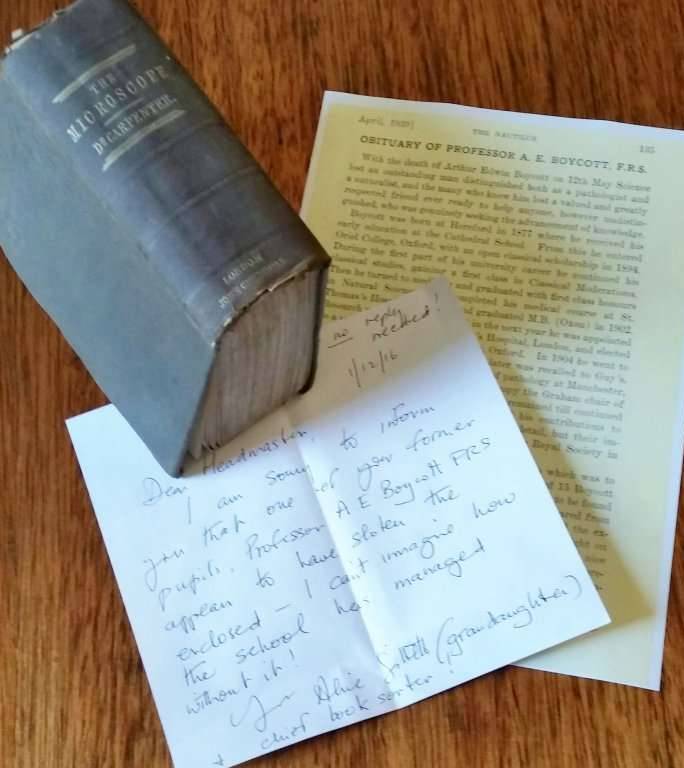 THE
MICROSCOPE
Dr CARPENTER.
LONDON
April, 1939]
THE NAUTILUS
135
OBITUARY OF PROFESSOR A. E. BOYCOTT, F.R.S.
With the death of Arthur Edwin Boycott on 12th May Science
lost an outstanding man distinguished both as a pathologist and
a naturalist, and the many who knew him lost a valued and greatly
respected friend ever ready to help anyone, however undistin-
guished, who was genuinely seeking the advancement of knowledge.
Boycott was born at Hereford in 1877 where he received his
early education at the Cathedral School. From this he entered
Oriel College, Oxford, with an open classical scholarship in 1894.
During the first part of his university career he continued his
classical studies, gaining a first class in Classical Moderations.
Then he turned to and graduated with first class honours
in Natural Scien completed his medical course at St.
Thomas's Hos graduated M.B. (Oxon) in 1902.
the next year he was appointed
Hospital, London, and elected
Oxford. In 1904 he went to
later was recalled to Guy's.
of pathology at Manchester,
py the Graham chair of
remained till continued
his contributions to
detail, but their im-
Royal Society in
which was to
of 15 Boycott
to be found
ared from
the ex-
ght on
no reply
needed!
1/12/16
Dear Headmaster,
I am sorry to inform
you that one of your former
pupils, Professor A E Boycott FRS
appears to have stolen the
enclosed – I can't imagine how
the school has managed
without it!
Yrs Alice (grandaughter)
+ chief book sorter!